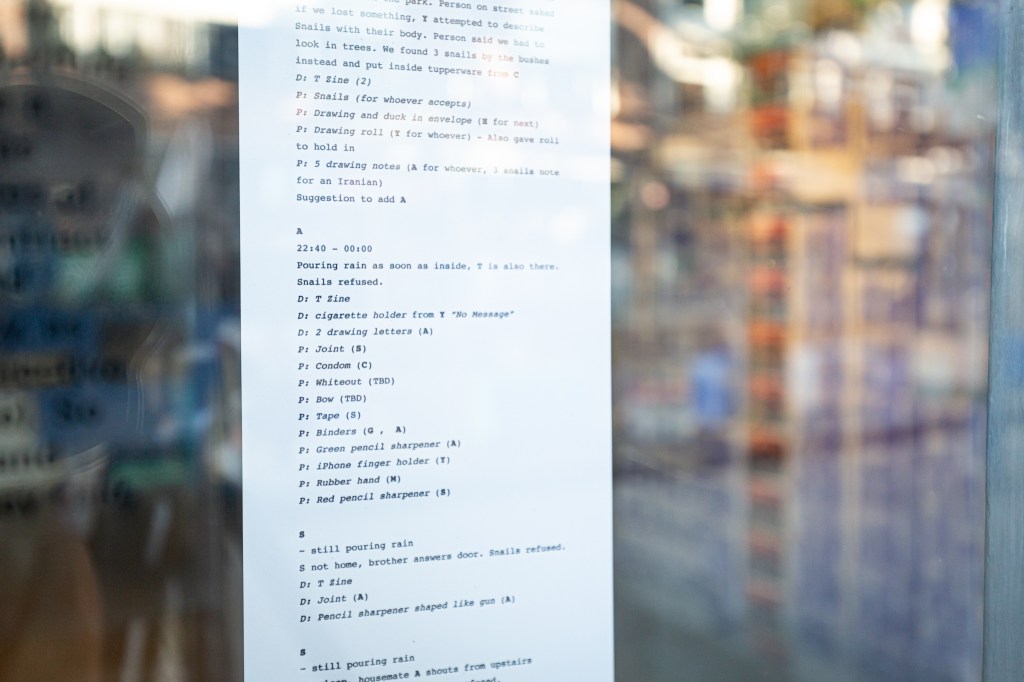 the park. Person on street asked
if we lost something, Y attempted to describe
Snails with their body. Person said we had to
look in trees. We found 3 snails by the bushes
instead and put inside tupperware from C
D: T Zine (2)
P: Snails (for whoever accepts)
P: Drawing and duck in envelope (M for next)
P: Drawing roll (Y for whoever) – Also gave roll
to hold in
P: 5 drawing notes (A for whoever, 3 snails note
for an Iranian)
Suggestion to add A
A
22:40 – 00:00
Pouring rain as soon as inside, T is also there.
Snails refused.
D: T Zine
D: cigarette holder from Y "No Message"
D: 2 drawing letters (A)
P: Joint (S)
P: Condom (C)
P: Whiteout (TBD)
P: Bow (TBD)
P: Tape (S)
P: Binders (G , A)
P: Green pencil sharpener (A)
P: iPhone finger holder (Y)
P: Rubber hand (M)
P: Red pencil sharpener (S)
S
– still pouring rain
S not home, brother answers door. Snails refused.
D: T Zine
D: Joint (A)
D: Pencil sharpener shaped like gun (A)
S
– still pouring rain
housemate A shouts from upstairs